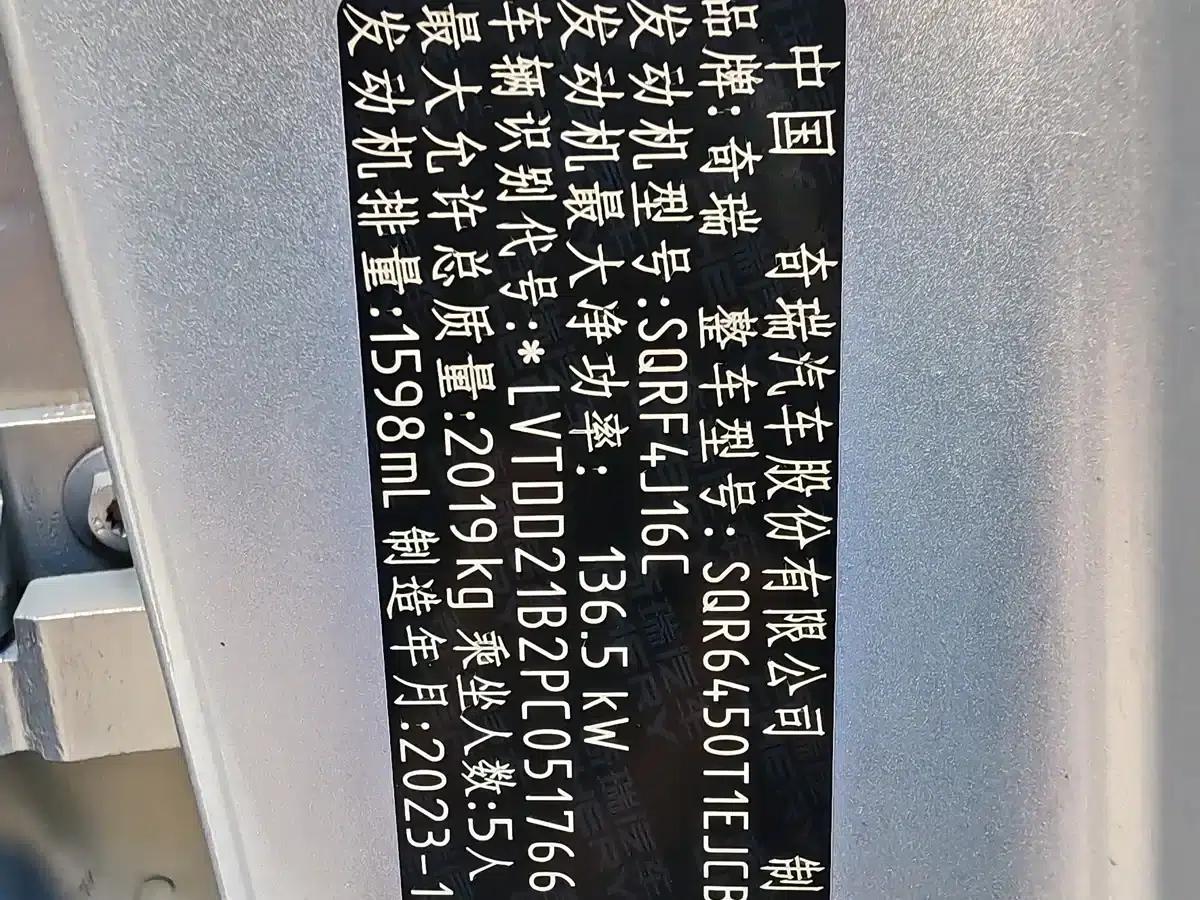 中国 奇瑞汽车股份有限公司 制
品牌:奇瑞 整车型号:SQR6450T1EJCB
发动机型号:SQRF4J16C
发动机最大净功率: 136.5 kW
车辆识别代号:*LVTDD21B2PC051766
最大允许总质量:2019kg 乘坐人数:5人
发动机排量:1598mL 制造年月:2023-1